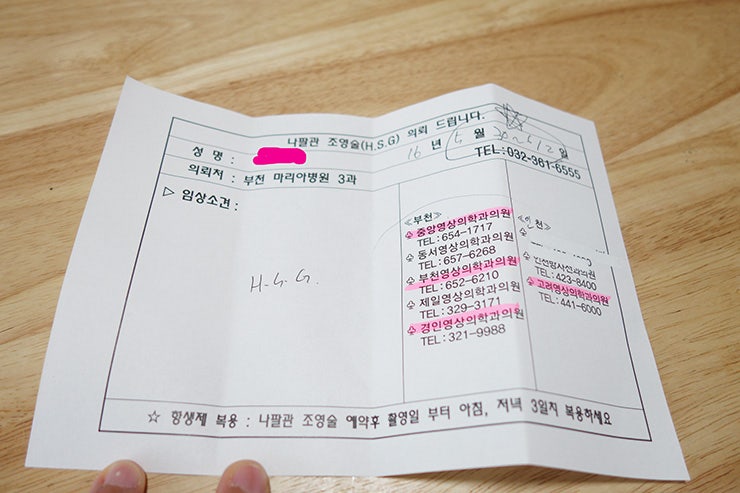 나팔관 조영술(H.S.G) 의뢰 드립니다.
성 명 :
16 년 5 월 일
TEL:032-361-6555
의뢰처 : 부천 마리아병원 3과
▷ 임상소견 :
H.S.G.
≪부천≫
♤ 중앙영상의학과의원
TEL:654-1717
♤ 동서영상의학과의원
TEL:657-6268
♤ 부천영상의학과의원
TEL:652-6210
♤ 제일영상의학과의원
TEL:329-3171
♤ 경인영상의학과의원
TEL:321-9988
천≫
TEL:423-8400
♤ 고려영상의학과의원
TEL:441-6000
☆ 항생제 복용 : 나팔관 조영술 예약후 촬영일 부터 아침, 저녁 3일치 복용하세요